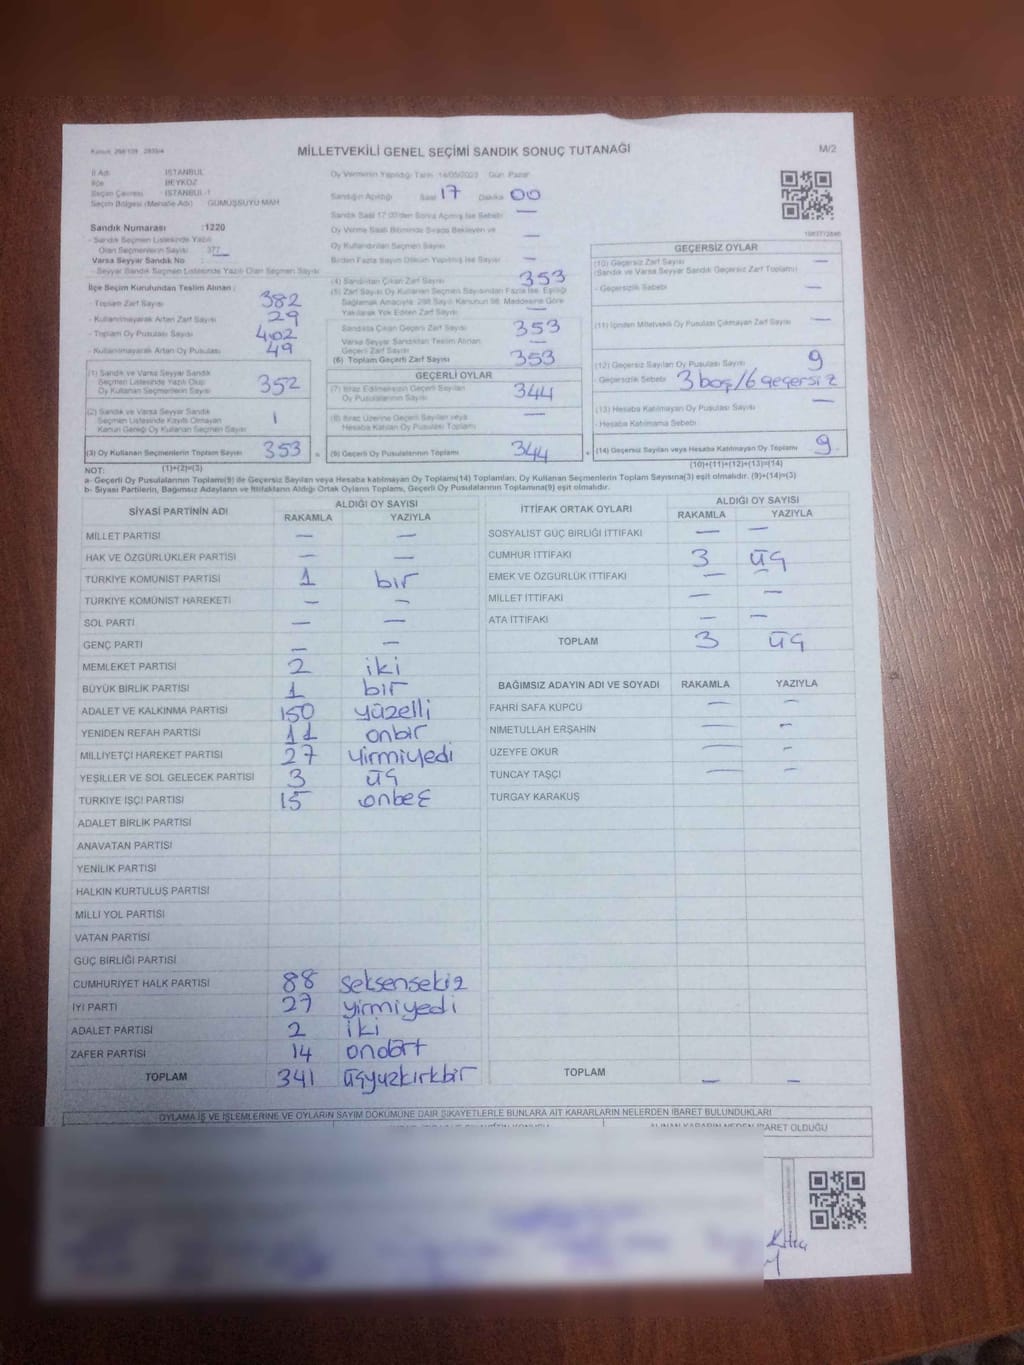 MİLLETVEKİLİ GENEL SEÇİMİ SANDIK SONUÇ TUTANAĞI
M/2
İl Adı İSTANBUL
İlçe BEYKOZ
Seçim Çevresi İSTANBUL-1
Seçim Bölgesi (Mahalle Adı) GÜMÜŞSUYU MAH
Oy Vermenin Yapıldığı Tarih 14/05/2023 Gün Pazar
Sandığın Açıldığı Saat 17 Dakika 00
Sandık Saat 17:00'den Sonra Açılmış İse Sebebi —
Sandık Numarası :1220
- Sandık Seçmen Listesinde Yazılı
Olan Seçmenlerin Sayısı 377
Varsa Seyyar Sandık No :
- Seyyar Sandık Seçmen Listesinde Yazılı Olan Seçmen Sayısı
İlçe Seçim Kurulundan Teslim Alınan :
- Toplam Zarf Sayısı 382
- Kullanılmayarak Artan Zarf Sayısı 29
- Toplam Oy Pusulası Sayısı 402
- Kullanılmayarak Artan Oy Pusulası 49
(1) Sandık ve Varsa Seyyar Sandık
Seçmen Listesinde Yazılı Olup
Oy Kullanan Seçmenlerin Sayısı 352
(2) Sandık ve Varsa Seyyar Sandık
Seçmen Listesinde Kayıtlı Olmayan
Kanun Gereği Oy Kullanan Seçmen Sayısı 1
(3) Oy Kullanan Seçmenlerin Toplam Sayısı 353
Oy Verme Saati Bitiminde Sırada Bekleyen ve
Oy Kullandırılan Seçmen Sayısı —
Birden Fazla Sayım Döküm Yapılmış İse Sayısı —
(4) Sandıktan Çıkan Zarf Sayısı 353
(5) Zarf Sayısı Oy Kullanan Seçmen Sayısından Fazla İse, Eşitliği
Sağlamak Amacıyla, 298 Sayılı Kanunun 98. Maddesine Göre
Yakılarak Yok Edilen Zarf Sayısı —
Sandıkta Çıkan Geçerli Zarf Sayısı 353
Varsa Seyyar Sandıktan Teslim Alınan
Geçerli Zarf Sayısı —
(6) Toplam Geçerli Zarf Sayısı 353
GEÇERLİ OYLAR
(7) İtiraz Edilmeksizin Geçerli Sayılan
Oy Pusulalarının Sayısı 344
(8) İtiraz Üzerine Geçerli Sayılan veya
Hesaba Katılan Oy Pusulaları Toplamı —
(9) Geçerli Oy Pusulalarının Toplamı 344
GEÇERSİZ OYLAR
(10) Geçersiz Zarf Sayısı —
(Sandık ve Varsa Seyyar Sandık Geçersiz Zarf Toplamı)
- Geçersizlik Sebebi —
(11) İçinden Milletvekili Oy Pusulası Çıkmayan Zarf Sayısı —
(12) Geçersiz Sayılan Oy Pusulası Sayısı 9
Geçersizlik Sebebi 3 boş/6 geçersiz
(13) Hesaba Katılmayan Oy Pusulası Sayısı —
- Hesaba Katılmama Sebebi
(14) Geçersiz Sayılan veya Hesaba Katılmayan Oy Toplamı 9
NOT: (1)+(2)=(3) (10)+(11)+(12)+(13)=(14)
a- Geçerli Oy Pusulalarının Toplamı(9) ile Geçersiz Sayılan veya Hesaba katılmayan Oy Toplamı(14) Toplamları, Oy Kullanan Seçmenlerin Toplam Sayısına(3) eşit olmalıdır. (9)+(14)=(3)
b- Siyasi Partilerin, Bağımsız Adayların ve İttifakların Aldığı Ortak Oyların Toplamı, Geçerli Oy Pusulalarının Toplamına(9) eşit olmalıdır.
SİYASİ PARTİNİN ADI ALDIĞI OY SAYISI
RAKAMLA YAZIYLA
MİLLET PARTİSİ — —
HAK VE ÖZGÜRLÜKLER PARTİSİ — —
TÜRKİYE KOMÜNİST PARTİSİ 1 bir
TÜRKİYE KOMÜNİST HAREKETİ — —
SOL PARTİ — —
GENÇ PARTİ — —
MEMLEKET PARTİSİ 2 iki
BÜYÜK BİRLİK PARTİSİ 1 bir
ADALET VE KALKINMA PARTİSİ 150 yüzelli
YENİDEN REFAH PARTİSİ 11 onbir
MİLLİYETÇİ HAREKET PARTİSİ 27 yirmiyedi
YEŞİLLER VE SOL GELECEK PARTİSİ 3 üç
TÜRKİYE İŞÇİ PARTİSİ 15 onbeş
ADALET BİRLİK PARTİSİ
ANAVATAN PARTİSİ
YENİLİK PARTİSİ
HALKIN KURTULUŞ PARTİSİ
MİLLİ YOL PARTİSİ
VATAN PARTİSİ
GÜÇ BİRLİĞİ PARTİSİ
CUMHURİYET HALK PARTİSİ 88 seksensekiz
İYİ PARTİ 27 yirmiyedi
ADALET PARTİSİ 2 iki
ZAFER PARTİSİ 14 ondört
TOPLAM 341 üçyüzkırkbir
İTTİFAK ORTAK OYLARI ALDIĞI OY SAYISI
RAKAMLA YAZIYLA
SOSYALİST GÜÇ BİRLİĞİ İTTİFAKI — —
CUMHUR İTTİFAKI 3 üç
EMEK VE ÖZGÜRLÜK İTTİFAKI — —
MİLLET İTTİFAKI — —
ATA İTTİFAKI — —
TOPLAM 3 üç
BAĞIMSIZ ADAYIN ADI VE SOYADI RAKAMLA YAZIYLA
FAHRİ SAFA KÜPCÜ — —
NİMETULLAH ERŞAHİN — —
ÜZEYFE OKUR — —
TUNCAY TAŞÇI — —
TURGAY KARAKUŞ
TOPLAM — —
OYLAMA İŞ VE İŞLEMLERİNE VE OYLARIN SAYIM DÖKÜMÜNE DAİR ŞİKAYETLERLE BUNLARA AİT KARARLARIN NELERDEN İBARET BULUNDUKLARI
ALINAN KARARIN NEDEN İBARET OLDUĞU